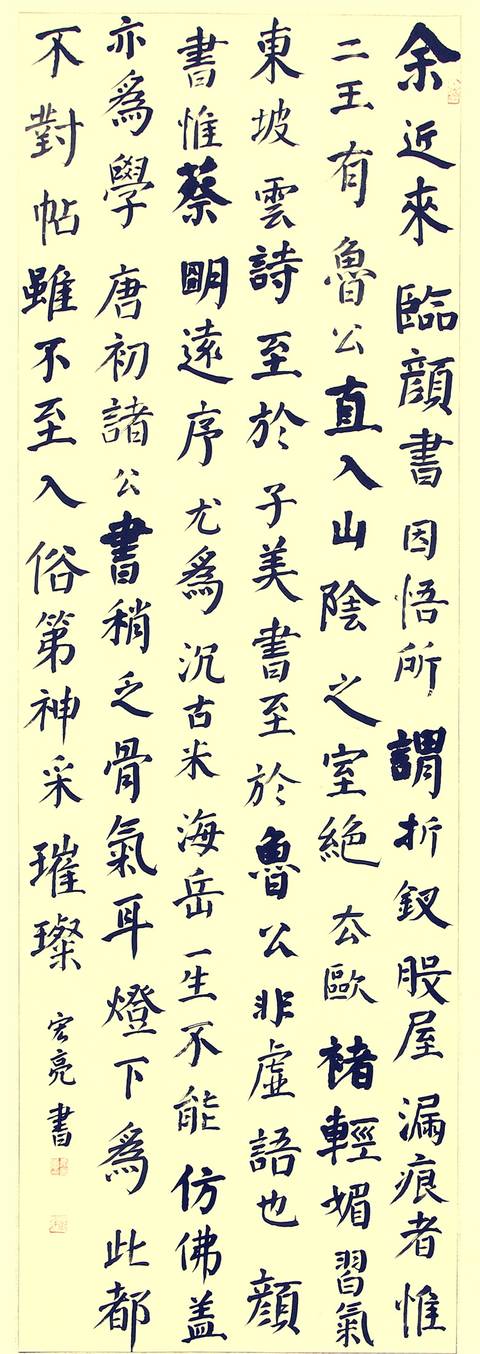 余近來臨顔書因悟所謂折釵股屋漏痕者惟
二王有魯公直入山陰之室絶去歐褚輕媚習氣
東坡雲詩至於子美書至於魯公非虛語也顔
書惟蔡明遠序尤爲沉古米海岳一生不能仿佛盖
亦爲學唐初諸公書稍乏骨氣耳燈下爲此都
不對帖雖不至入俗第神采璀璨
宏亮書